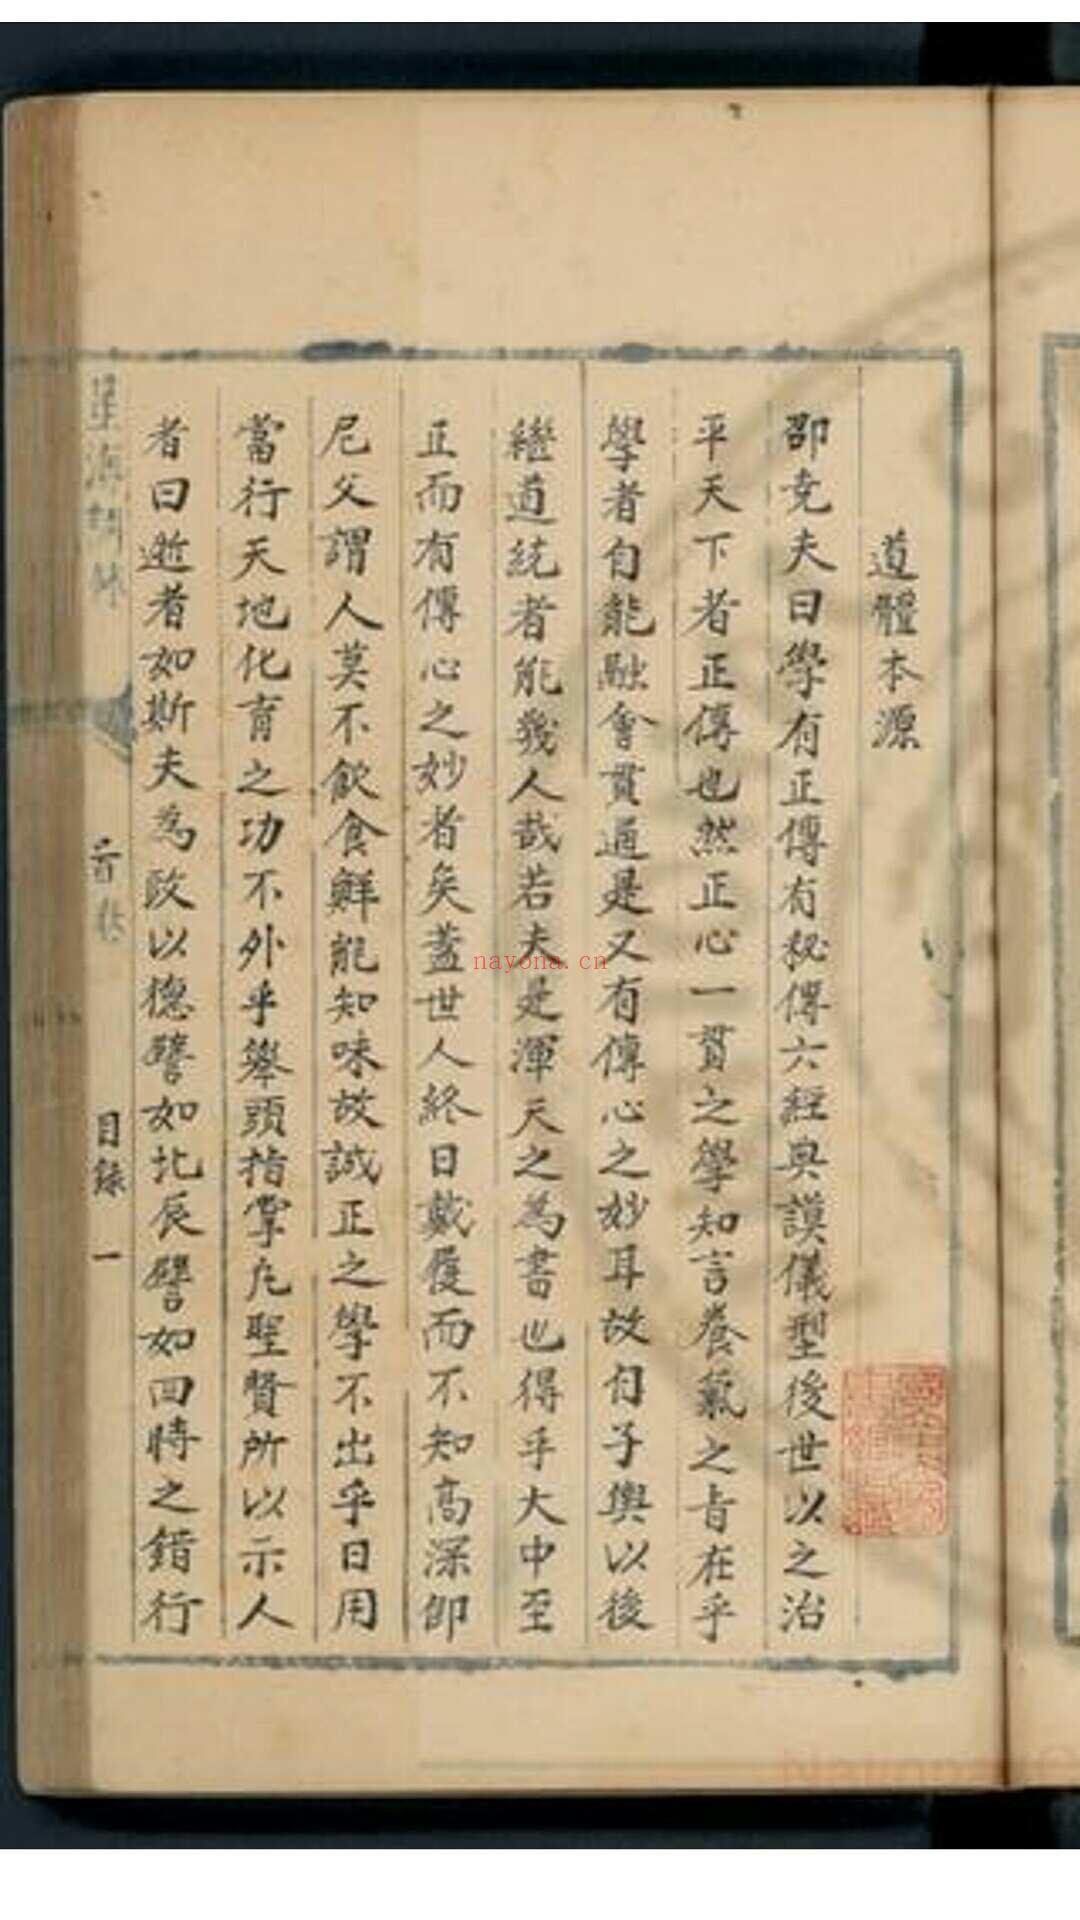 道體本源
邵尭夫曰學有正傳有秘傳六經典謨儀型後世以之治
平天下者正傳也然正心一貫之學知言養氣之旨在乎
學者自能融會貫通是又有傳心之妙耳故自子輿以後
繼道統者能幾人哉若夫是渾天之為書也得乎大中至
正而有傳心之妙者矣蓋世人終日戴履而不知高深卽
尼父謂人莫不飲食鮮能知味故誠正之學不出乎日用
當行天地化育之功不外乎舉頭指掌凢聖賢所以示人
者曰逝者如斯夫為政以德譬如北辰譬如四時之錯行
首卷
目錄
一
nayona.cn